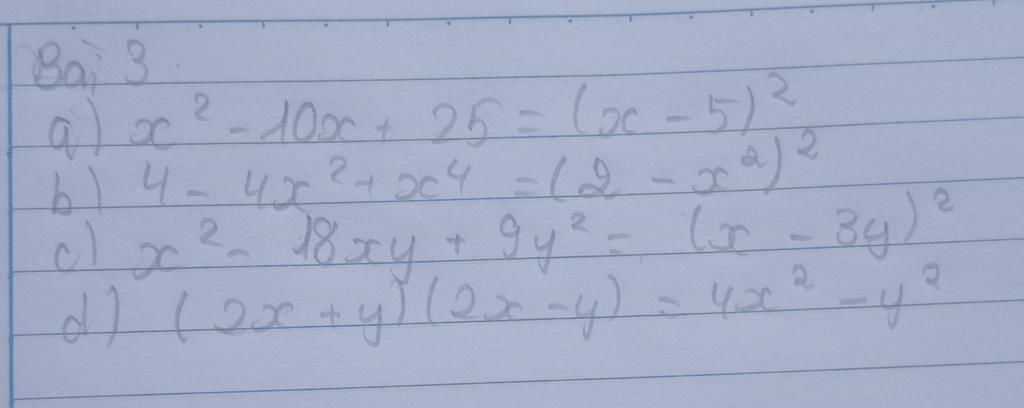 Bài 3
a) x² - 10x + 25 = (x - 5)²
b) 4 - 4x² + x⁴ = (2 - x²)²
c) x² - 18xy + 9y² = (x - 3y)²
d) (2x + y)(2x - y) = 4x² - y²